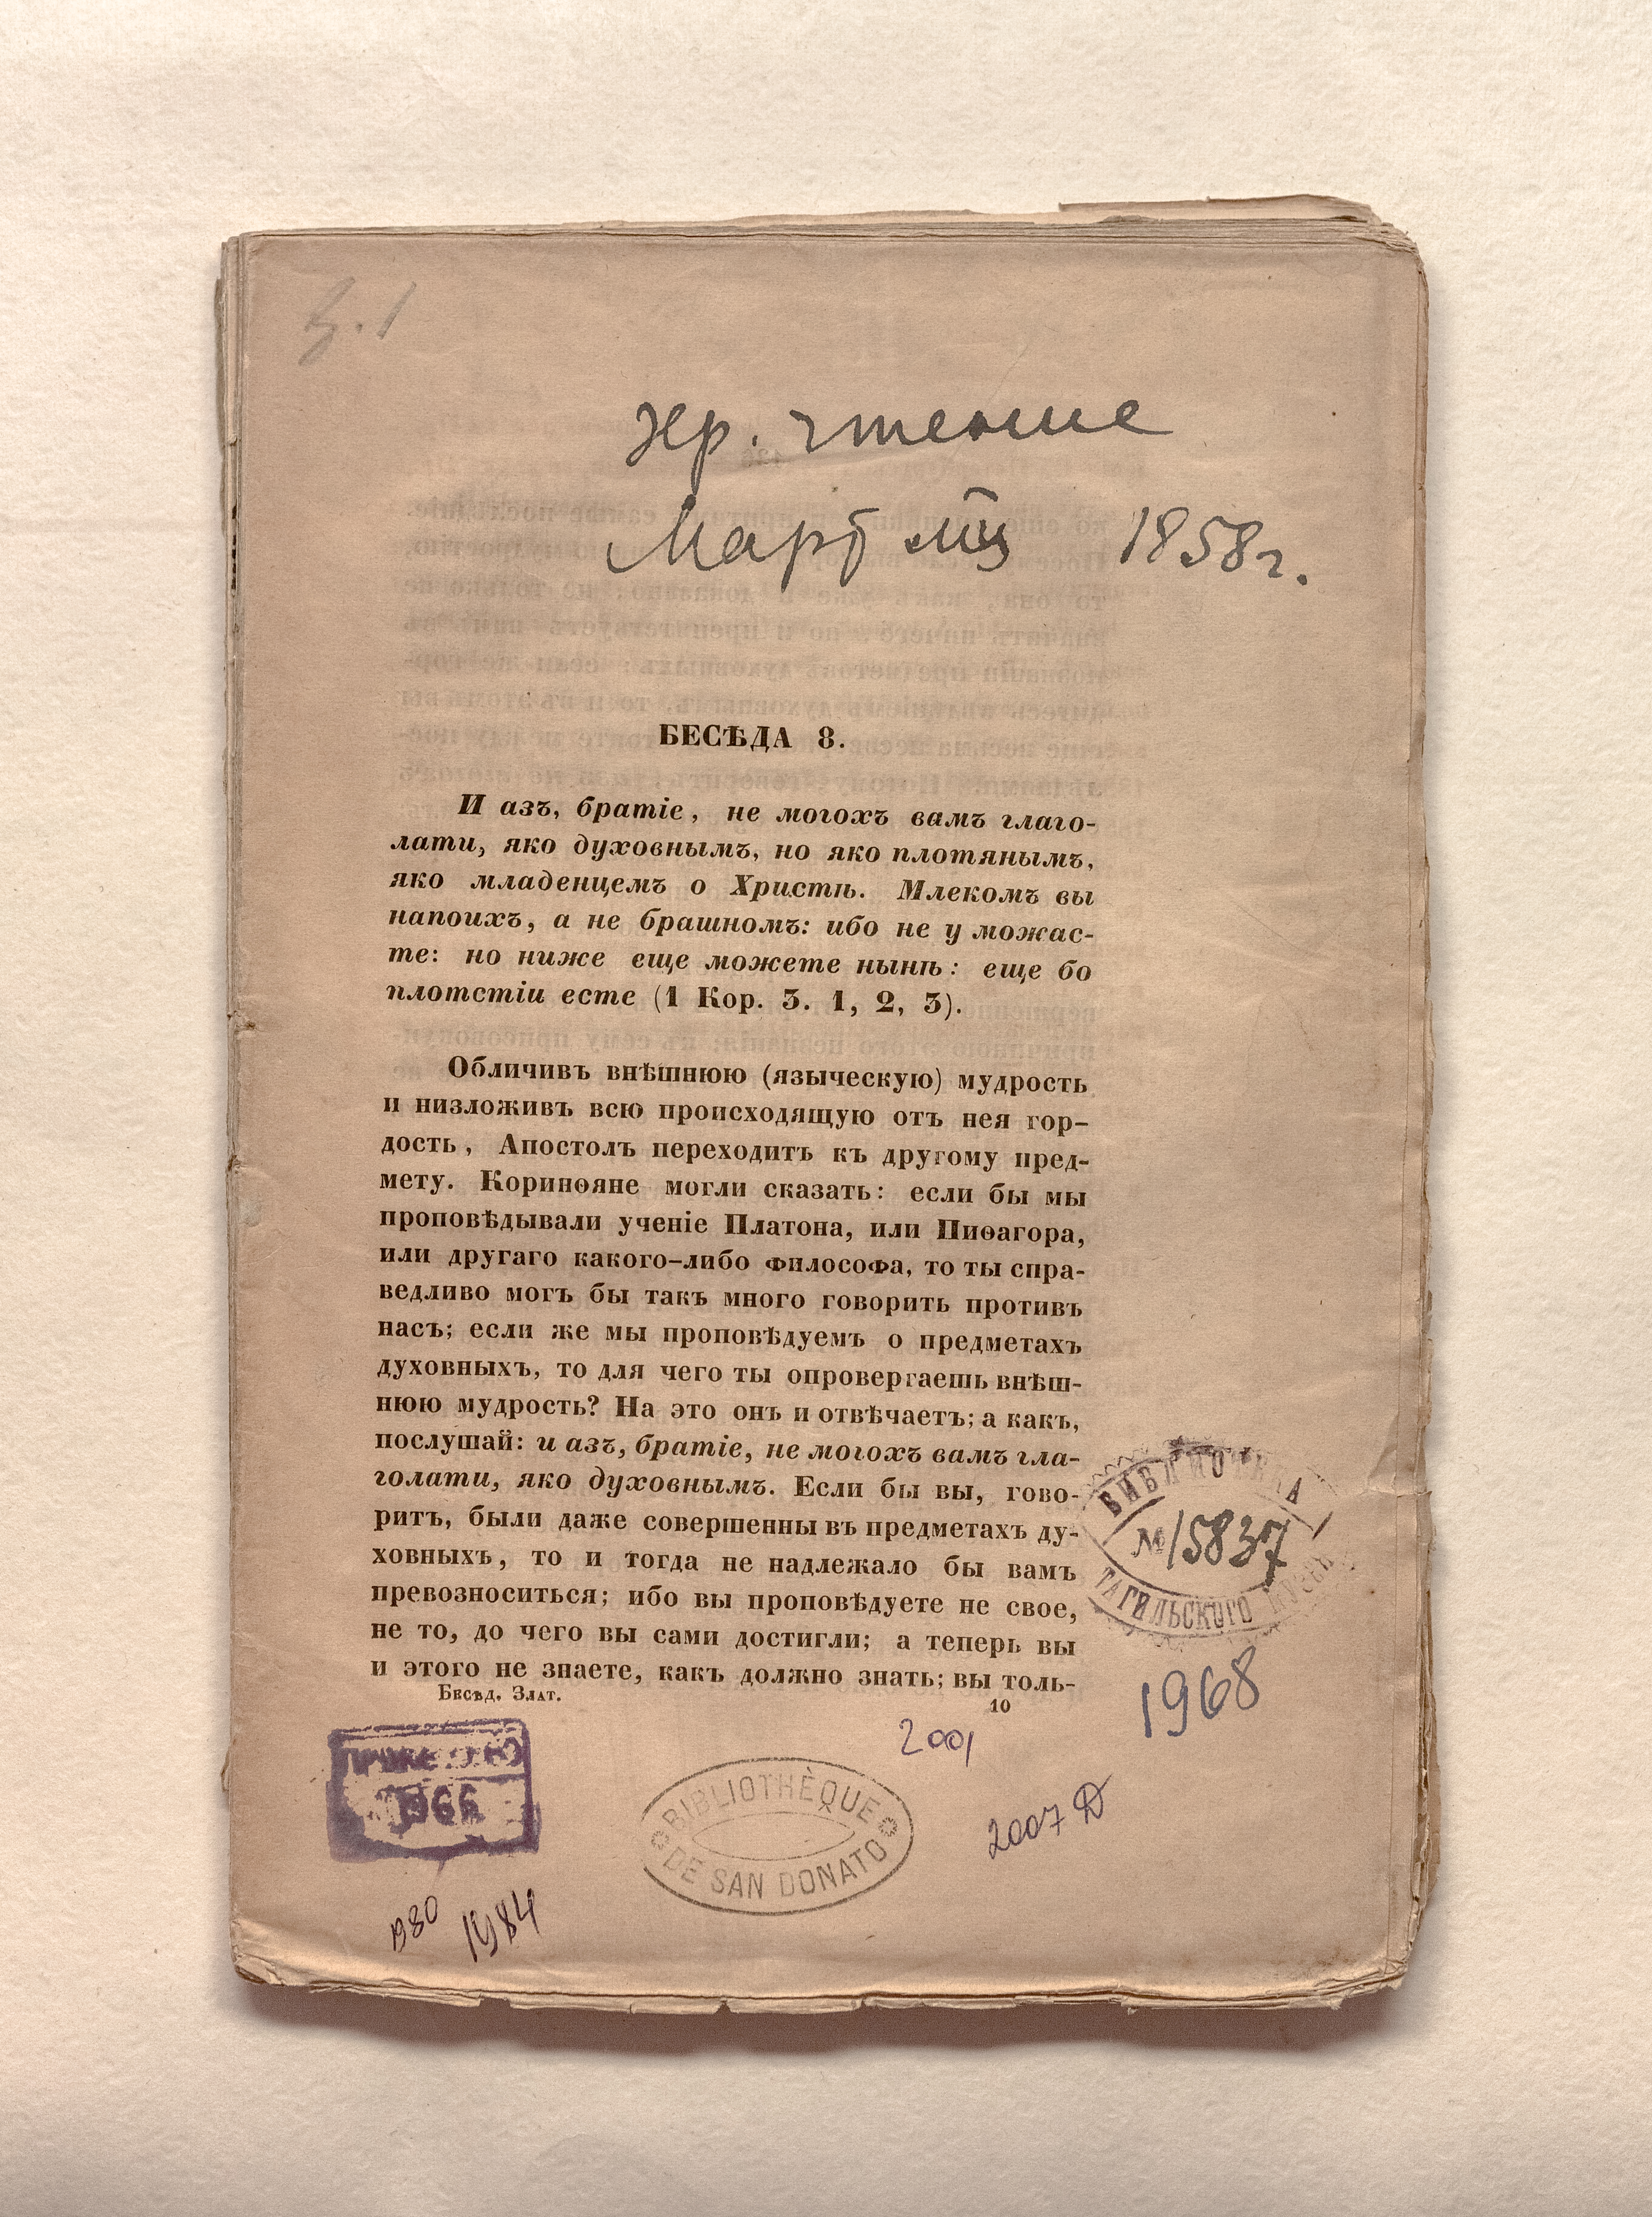 хр. чтение
Мартъ мц̃ъ 1858 г.
БЕСѢДА 8.
И азъ, братіе, не могохъ вамъ глаго-
лати, яко духовнымъ, но яко плотянымъ,
яко младенцемъ о Христѣ. Млекомъ вы
напоихъ, а не брашномъ: ибо не у можас-
те: но ниже еще можете нынѣ: еще бо
плотстіи есте (1 Кор. 3. 1, 2, 3).
Обличивъ внѣшнюю (языческую) мудрость
и низложивъ всю происходящую отъ нея гор-
дость, Апостолъ переходитъ къ другому пред-
мету. Коринѳяне могли сказать: если бы мы
проповѣдывали ученіе Платона, или Пиѳагора,
или другаго какого-либо философа, то ты спра-
ведливо могъ бы такъ много говорить противъ
насъ; если же мы проповѣдуемъ о предметахъ
духовныхъ, то для чего ты опровергаешь внѣш-
нюю мудрость? На это онъ и отвѣчаетъ; а какъ,
послушай: и азъ, братіе, не могохъ вамъ гла-
голати, яко духовнымъ. Если бы вы, гово-
ритъ, были даже совершенны въ предметахъ ду-
ховныхъ, то и тогда не надлежало бы вамъ
превозноситься; ибо вы проповѣдуете не свое,
не то, до чего вы сами достигли; а теперь вы
и этого не знаете, какъ должно знать; вы толь-
Бесѣд. Злат.
10
БИБЛИОТЕКА
№ 15837
ТАГИЛЬСКОГО МУЗЕЯ
1968
2001
2007
ПРОВЕРЕНО
1966
BIBLIOTHÈQUE
DE SAN DONATO
1980
1984